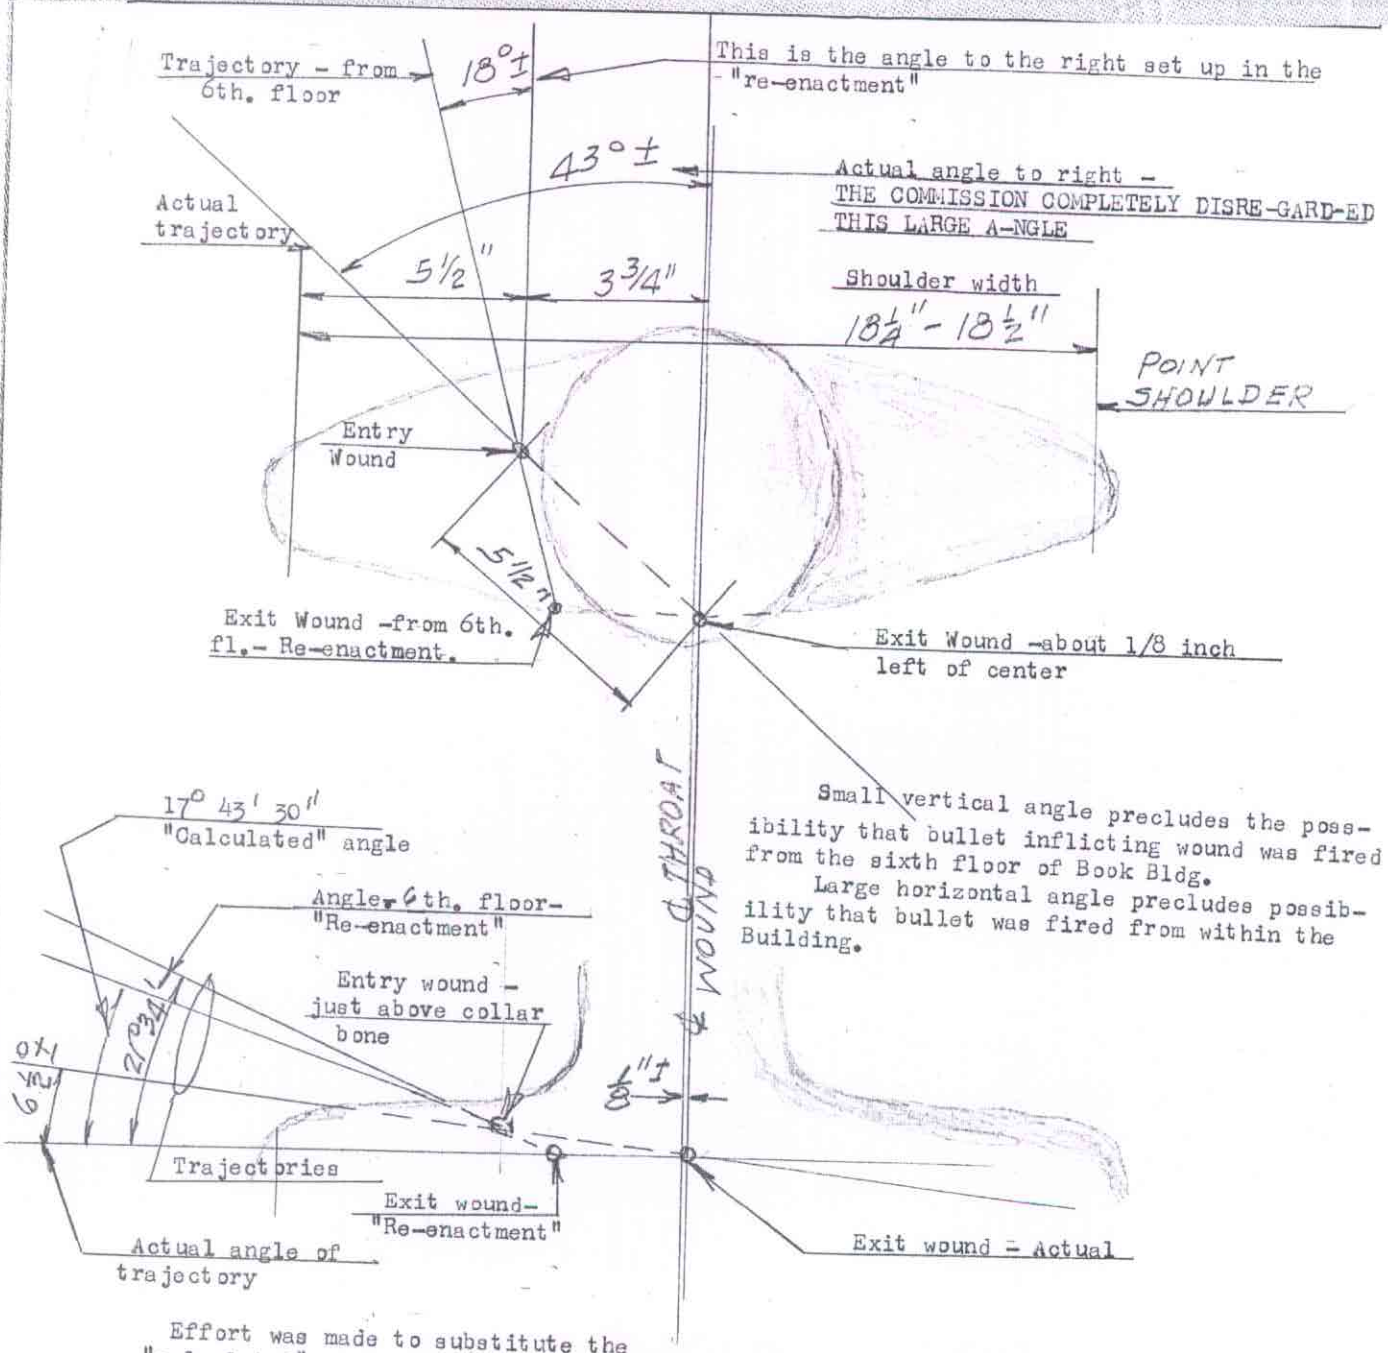 Trajectory - from
6th. floor
18° ±
This is the angle to the right set up in the
"re-enactment"
43° ±
Actual angle to right -
THE COMMISSION COMPLETELY DISRE-GARD-ED
THIS LARGE A-NGLE
Actual
trajectory
5 1/2"
3 3/4"
Shoulder width
18 1/4" - 18 1/2"
POINT
SHOULDER
Entry
Wound
5 1/2"
Exit Wound -from 6th.
fl.- Re-enactment.
Exit Wound -about 1/8 inch
left of center
THROAT
WOUND
17° 43' 30"
"Calculated" angle
Small vertical angle precludes the poss-
ibility that bullet inflicting wound was fired
from the sixth floor of Book Bldg.
Large horizontal angle precludes possib-
ility that bullet was fired from within the
Building.
Angle- 6th. floor-
"Re-enactment"
Entry wound -
just above collar
bone
21° 34'
1/8" ±
Trajectories
Exit wound-
"Re-enactment"
Actual angle of
trajectory
Exit wound - Actual
Effort was made to substitute the